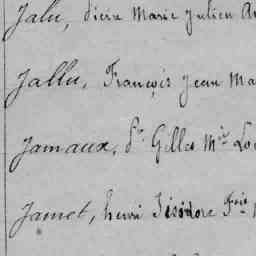 Jalu, Pierre Marie Julien
Jallu, François Jean Ma
Jamaux, Gilles Mie
Jamet, henri Isidore Fois